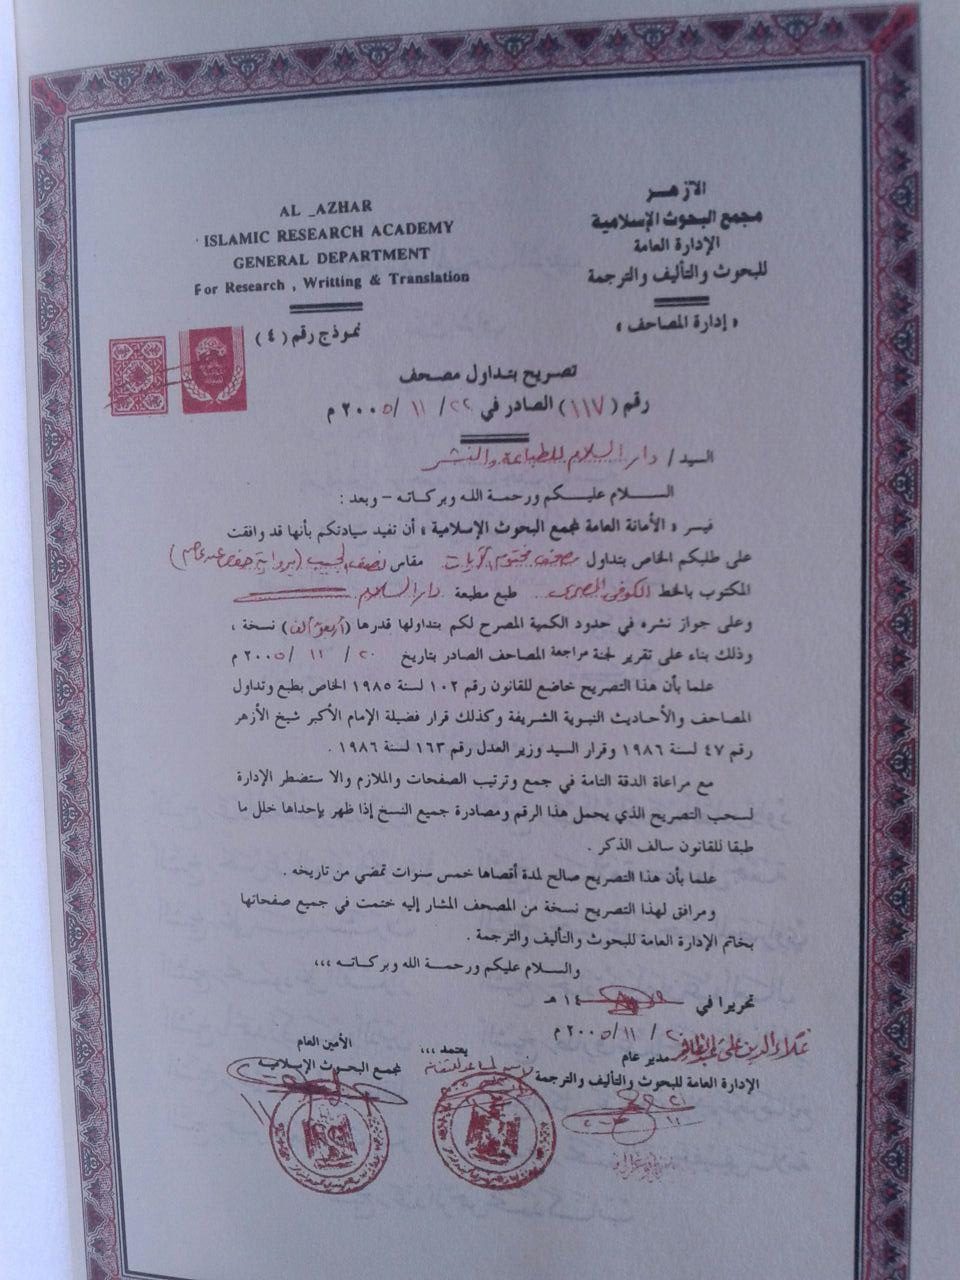 AL _AZHAR
ISLAMIC RESEARCH ACADEMY
GENERAL DEPARTMENT
For Research , Writting & Translation
الأزهـــر
مجمع البحوث الإسلامية
الإدارة العامة
للبحوث والتأليف والترجمة
« إدارة المصاحف »
نموذج رقم ( ٤ )
تصريح بتداول مصحف
رقم ( ١١٧ ) الصادر في ٢٢ / ١١ / ٢٠٠٥ م
السيد / دار السلام للطباعة والنشر
الســـلام عليـــكم ورحمـة اللـه وبركاتـه – وبعد :
فيسر « الأمانة العامة لمجمع البحوث الإسلامية » أن تفيد سيادتكم بأنها قد وافقت
على طلبكم الخاص بتداول مصحف مختوم الآيات مقاس نصف الجيب (برواية حفص عن عاصم)
المكتوب بالخط الكوفى المصرى طبع مطبعة دار السلام
وعلى جواز نشره في حدود الكمية المصرح لكم بتداولها قدرها (أربعون ألف) نسخة ،
وذلك بناء على تقرير لجنة مراجعة المصاحف الصادر بتاريخ ٢٠ / ١١ / ٢٠٠٥ م
علما بأن هذا التصريح خاضع للقانون رقم ١٠٢ لسنة ١٩٨٥ الخاص بطبع وتداول
المصاحف والأحاديث النبوية الشريفة وكذلك قرار فضيلة الإمام الأكبر شيخ الأزهر
رقم ٤٧ لسنة ١٩٨٦ وقرار السيد وزير العدل رقم ١٦٣ لسنة ١٩٨٦ .
مع مراعاة الدقة التامة في جمع وترتيب الصفحات والملازم والا ستضطر الإدارة
لسحب التصريح الذي يحمل هذا الرقم ومصادرة جميع النسخ إذا ظهر بإحداها خلل ما
طبقا للقانون سالف الذكر .
علما بأن هذا التصريح صالح لمدة أقصاها خمس سنوات تمضي من تاريخه .
ومرافق لهذا التصريح نسخة من المصحف المشار إليه ختمت في جميع صفحاتها
بخاتم الإدارة العامة للبحوث والتأليف والترجمة .
والسلام عليكم ورحمـة الله وبركاتـــه ،،،
تحريرا في ١٤ هـ
/ ١١ / ٢٠٠٥ م
مدير عام
الإدارة العامة للبحوث والتأليف والترجمة
يعتمد ،،،
الأمين العام
لمجمع البحـوث الإسلاميـة